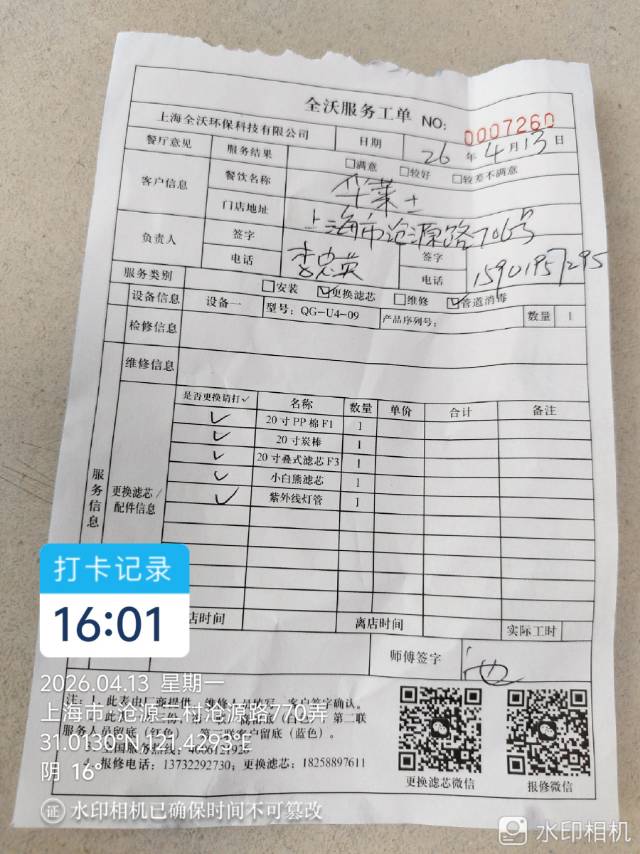 全沃服务工单 NO: 0007260
上海全沃环保科技有限公司 日期 26 年 4 月 13 日
餐厅意见 服务结果 □满意 □较好 □较差不满意
客户信息 餐饮名称 华莱士
门店地址 上海市沧源路706号
负责人 签字 签字
电话 电话 15901957295
服务类别 □安装 ☑更换滤芯 □维修 ☑管道消毒
设备信息 设备一 型号: QG-U4-09 产品序列号: 数量 1
检修信息
维修信息
服务信息
更换滤芯/配件信息
是否更换请打✓ 名称 数量 单价 合计 备注
✓ 20寸PP棉F1 1
✓ 20寸炭棒 1
✓ 20寸叠式滤芯F3 1
✓ 小白熊滤芯 1
✓ 紫外线灯管 1
店时间 离店时间 实际工时
师傅签字
打卡记录
16:01
2026.04.13 星期一
上海市·沧源二村沧源路770弄
31.0130°N,121.4293°E
阴 16°
注: 1、此表由
客户签字确认。
第二联
服务人员留底（红色）
客户留底（蓝色）。
报修电话: 13732292730; 更换滤芯: 18258897611
更换滤芯微信 报修微信
证 水印相机已确保时间不可篡改
水印相机